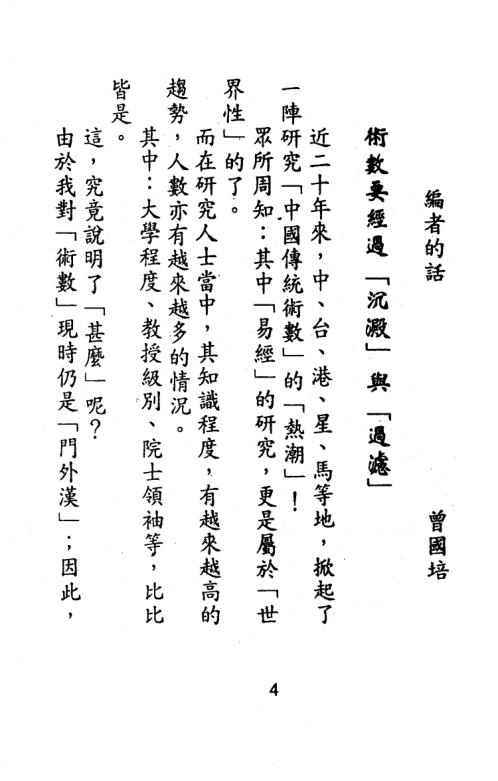 編者的話　曾國培
術數要經過「沉澱」與「過濾」
近二十年來，中、台、港、星、馬等地，掀起了
一陣研究「中國傳統術數」的「熱潮」！
眾所周知：其中「易經」的研究，更是屬於「世
界性」的了。
而在研究人士當中，其知識程度，有越來越高的
趨勢，人數亦有越來越多的情況。
其中：大學程度、教授級別、院士領袖等，比比
皆是。
這，究竟說明了「甚麼」呢？
由於我對「術數」現時仍是「門外漢」；因此，
4